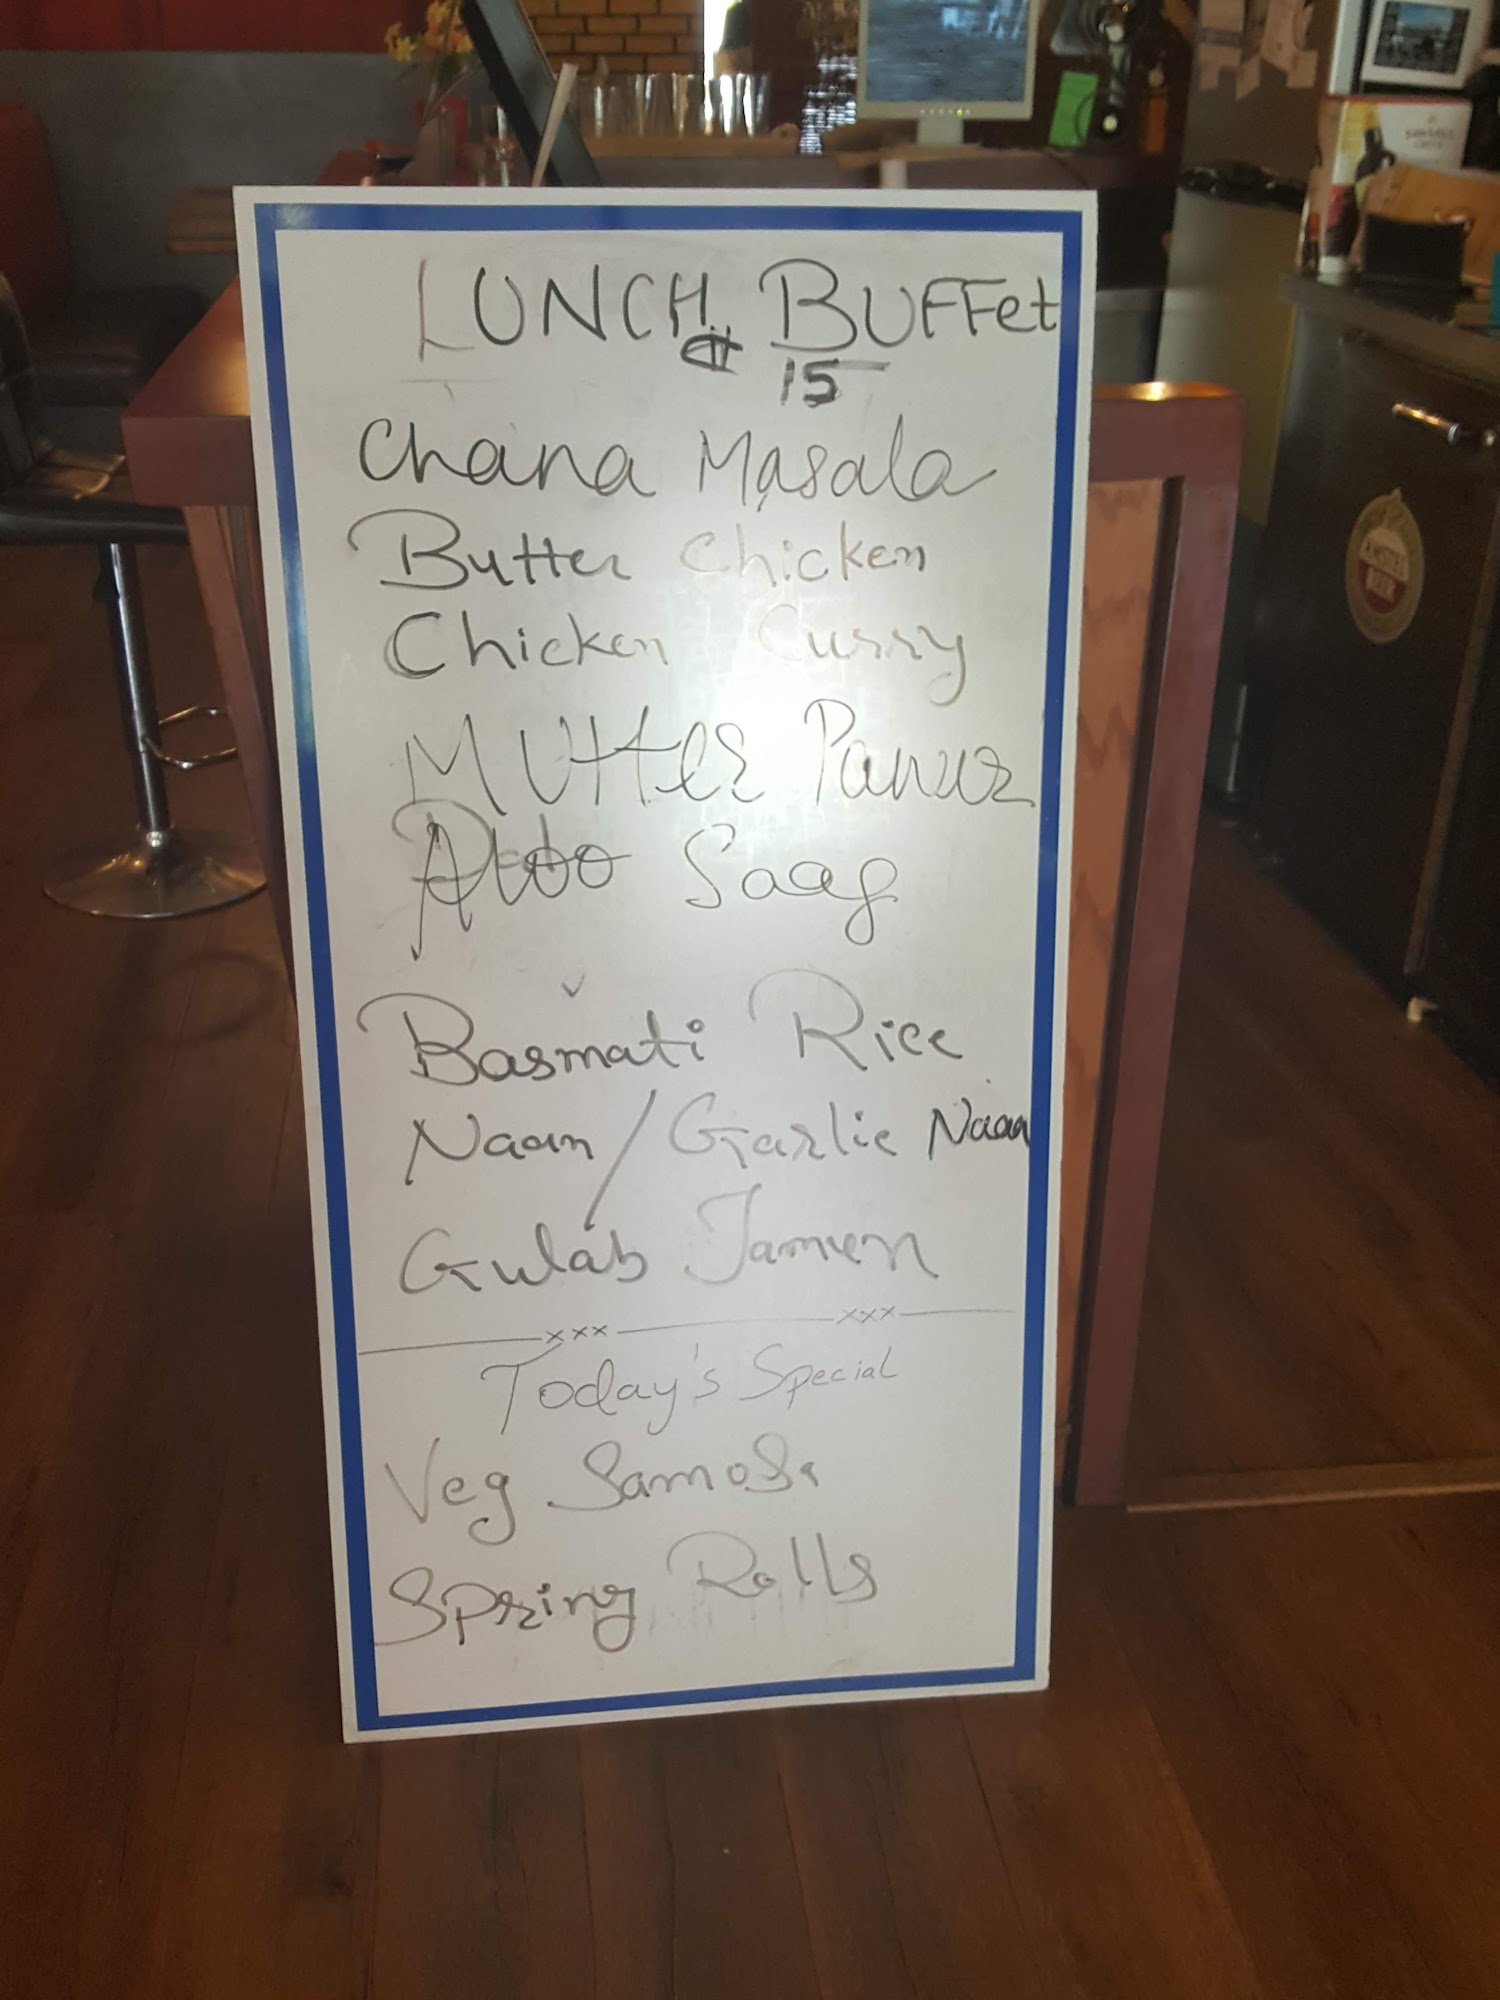 LUNCH BUFFet
15
Chana Masala
Butter Chicken
Chicken Curry
MUtter Paneer
Aloo Saag
Basmati Rice
Naan / Garlic Naan
Gulab Jamun
xxx xxx
Today's Special
Veg Samosa
Spring Rolls
AMSTEL